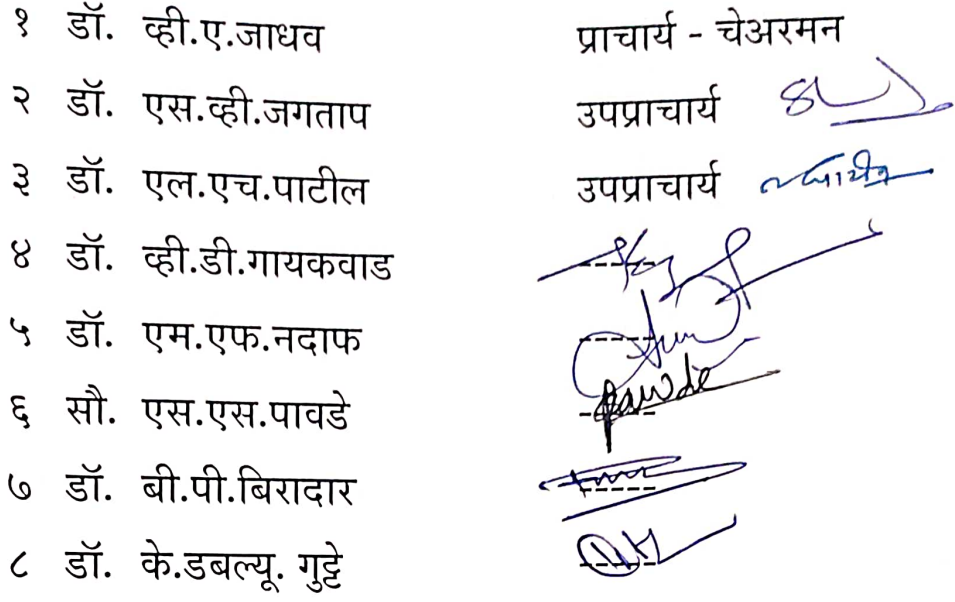 १ डॉ. व्ही.ए.जाधव प्राचार्य - चेअरमन
२ डॉ. एस.व्ही.जगताप उपप्राचार्य
३ डॉ. एल.एच.पाटील उपप्राचार्य
४ डॉ. व्ही.डी.गायकवाड ------
५ डॉ. एम.एफ.नदाफ ------
६ सौ. एस.एस.पावडे ------ Pawde
७ डॉ. बी.पी.बिरादार ------
८ डॉ. के.डबल्यू. गुट्टे ------